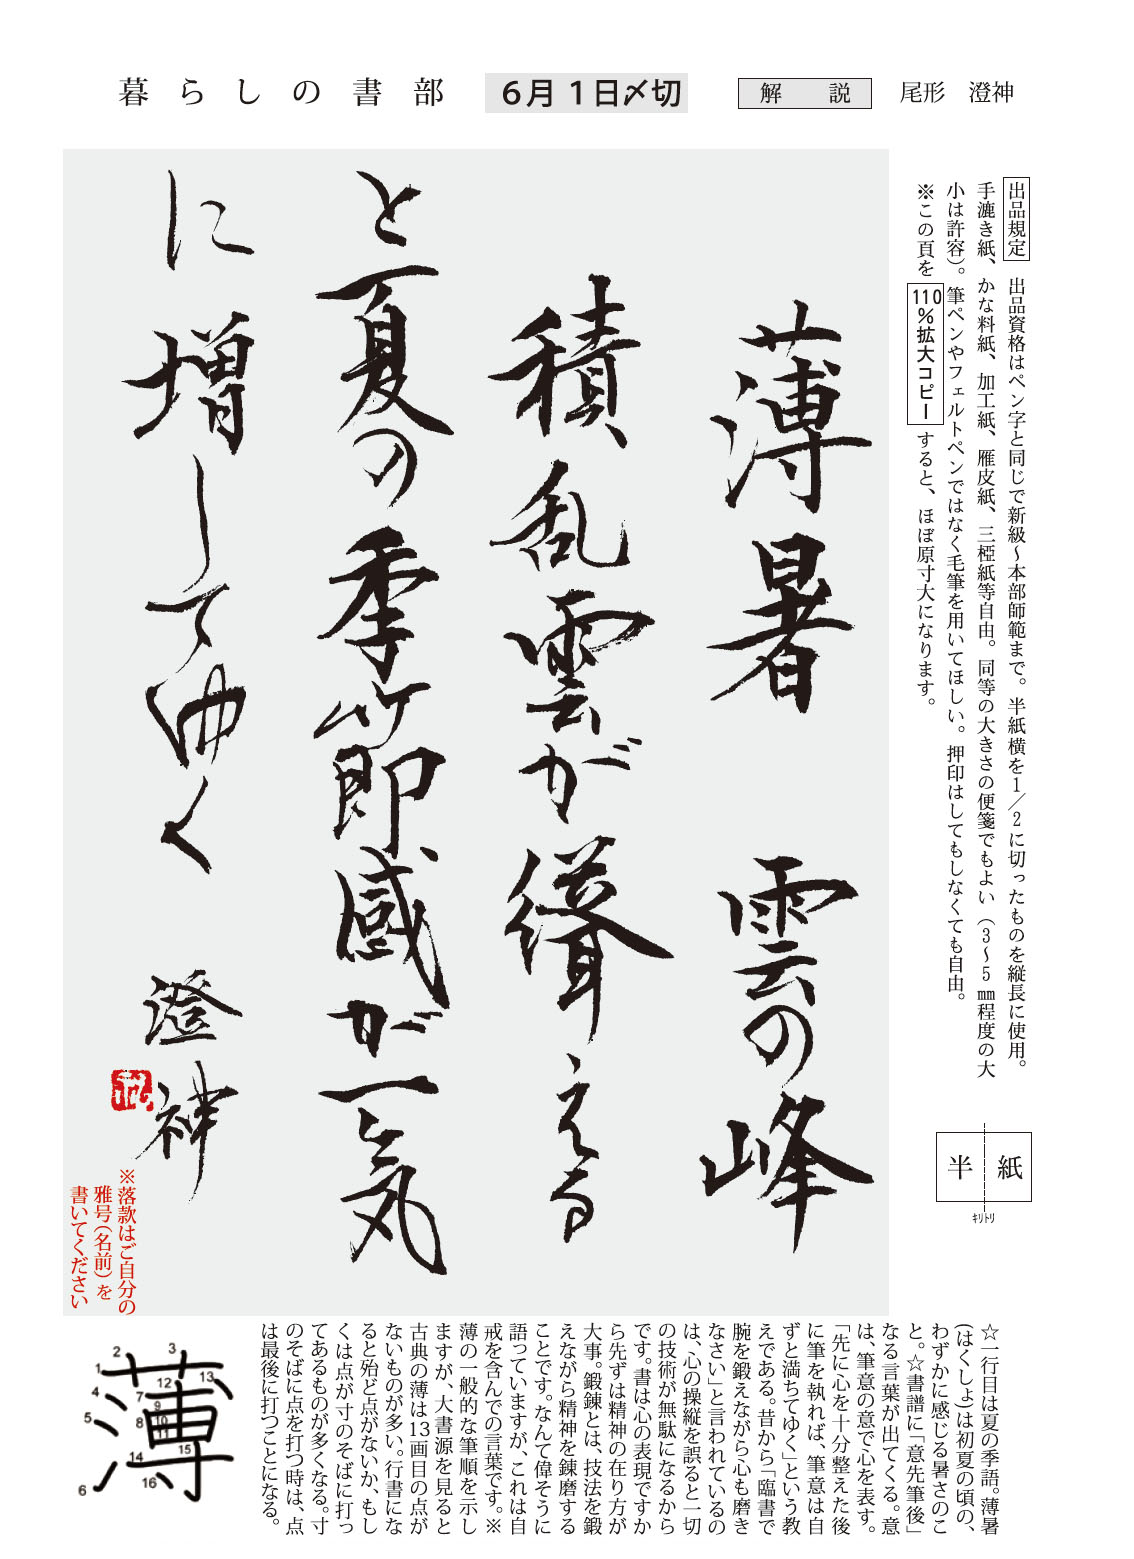 暮らしの書部
6月1日〆切
解説
尾形 澄神
出品規定 出品資格はペン字と同じで新級～本部師範まで。半紙横を1／2に切ったものを縦長に使用。
手漉き紙、かな料紙、加工紙、雁皮紙、三椏紙等自由。同等の大きさの便箋でもよい（3～5㎜程度の大
小は許容）。筆ペンやフェルトペンではなく毛筆を用いてほしい。押印はしてもしなくても自由。
※この頁を110％拡大コピーすると、ほぼ原寸大になります。
半紙
ｷﾘﾄﾘ
薄暑 雲の峰
積乱雲が聳える
と夏の季節感が一気
に増してゆく 澄神
※落款はご自分の
雅号（名前）を
書いてください
☆一行目は夏の季語。薄暑
（はくしょ）は初夏の頃の、
わずかに感じる暑さのこ
と。☆書譜に「意先筆後」
なる言葉が出てくる。意
は、筆意の意で心を表す。
「先に心を十分整えた後
に筆を執れば、筆意は自
ずと満ちてゆく」という教
えである。昔から「臨書で
腕を鍛えながら心も磨き
なさい」と言われているの
は、心の操縦を誤ると一切
の技術が無駄になるから
です。書は心の表現ですか
ら先ずは精神の在り方が
大事。鍛錬とは、技法を鍛
えながら精神を錬磨する
ことです。なんて偉そうに
語っていますが、これは自
戒を含んでの言葉です。※
薄の一般的な筆順を示し
ますが、大書源を見ると
古典の薄は13画目の点が
ないものが多い。行書にな
ると殆ど点がないか、もし
くは点が寸のそばに打っ
てあるものが多くなる。寸
のそばに点を打つ時は、点
は最後に打つことになる。
薄
1
2
3
4
5
6
7
8
9
10
11
12
13
14
15
16